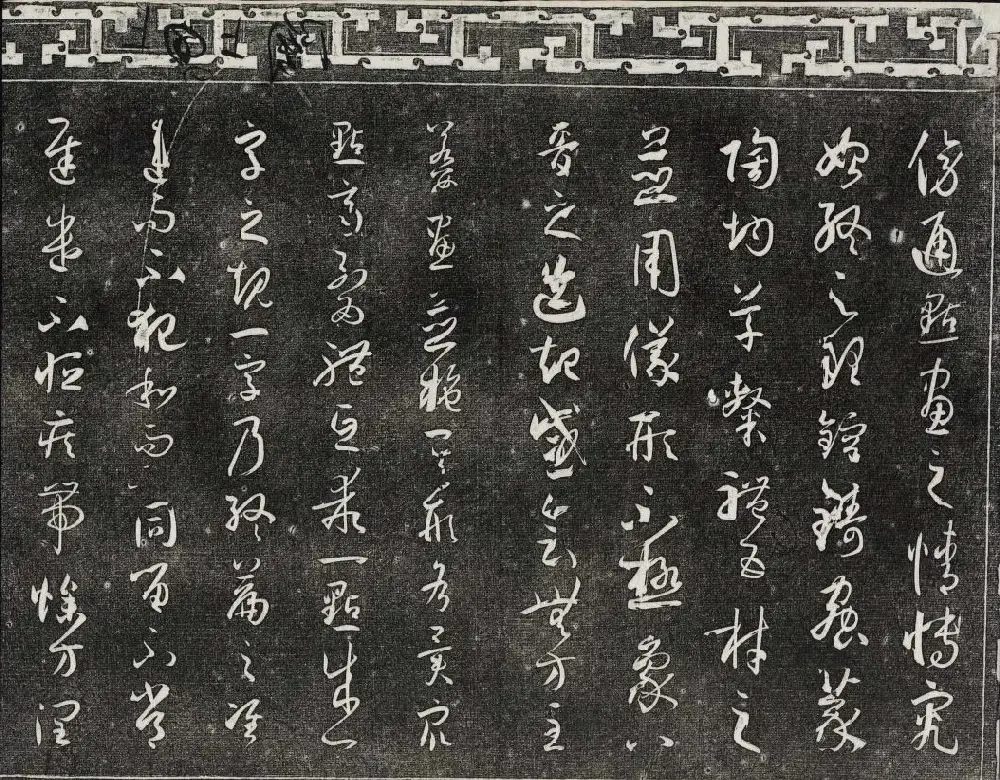 傍通點畫之情博究
始終之理鎔鑄蟲篆
陶均草隸體五材之
並用儀形不極象八
音之迭起感會無方至
若數畫並施其形各異眾
點齊列為體互乖一點成一
字之規一字乃終篇之準
違而不犯和而不同留不常
遲遣不恒疾帶燥方潤